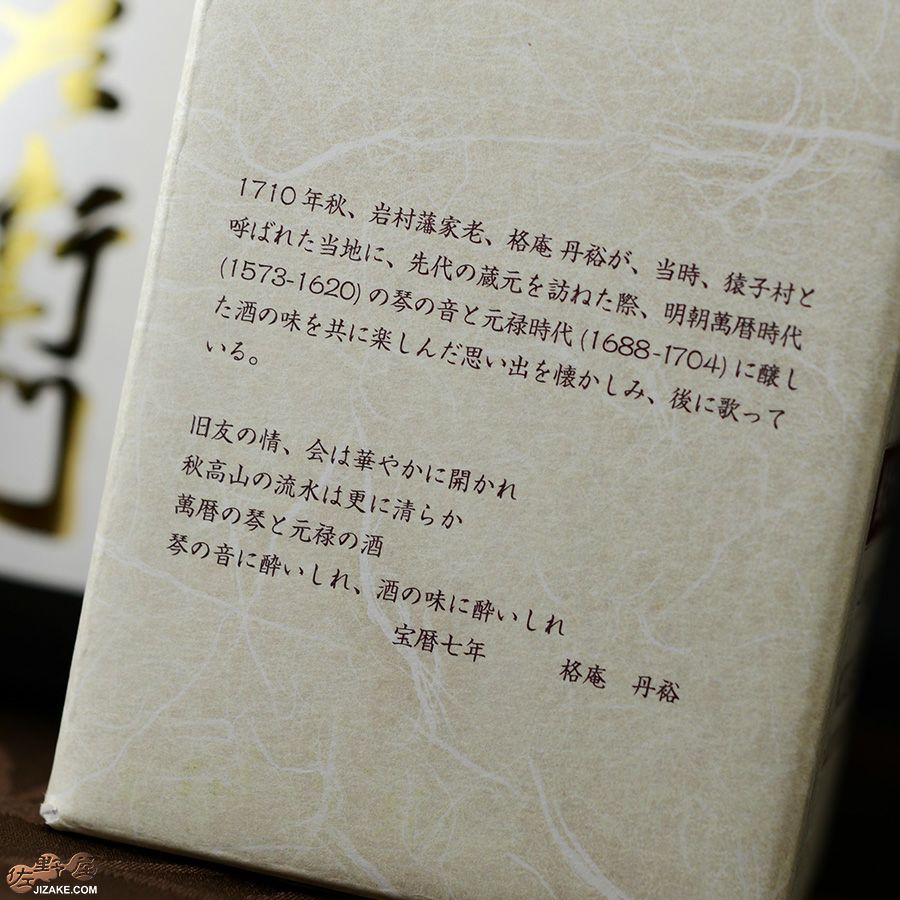 1710年秋、岩村藩家老、格庵 丹裕が、当時、猿子村と
呼ばれた当地に、先代の蔵元を訪ねた際、明朝萬暦時代
(1573-1620)の琴の音と元禄時代(1688-1704)に醸し
た酒の味を共に楽しんだ思い出を懐かしみ、後に歌って
いる。
旧友の情、会は華やかに開かれ
秋高山の流水は更に清らか
萬暦の琴と元禄の酒
琴の音に酔いしれ、酒の味に酔いしれ
宝暦七年 格庵 丹裕
佐野屋
JIZAKE.COM